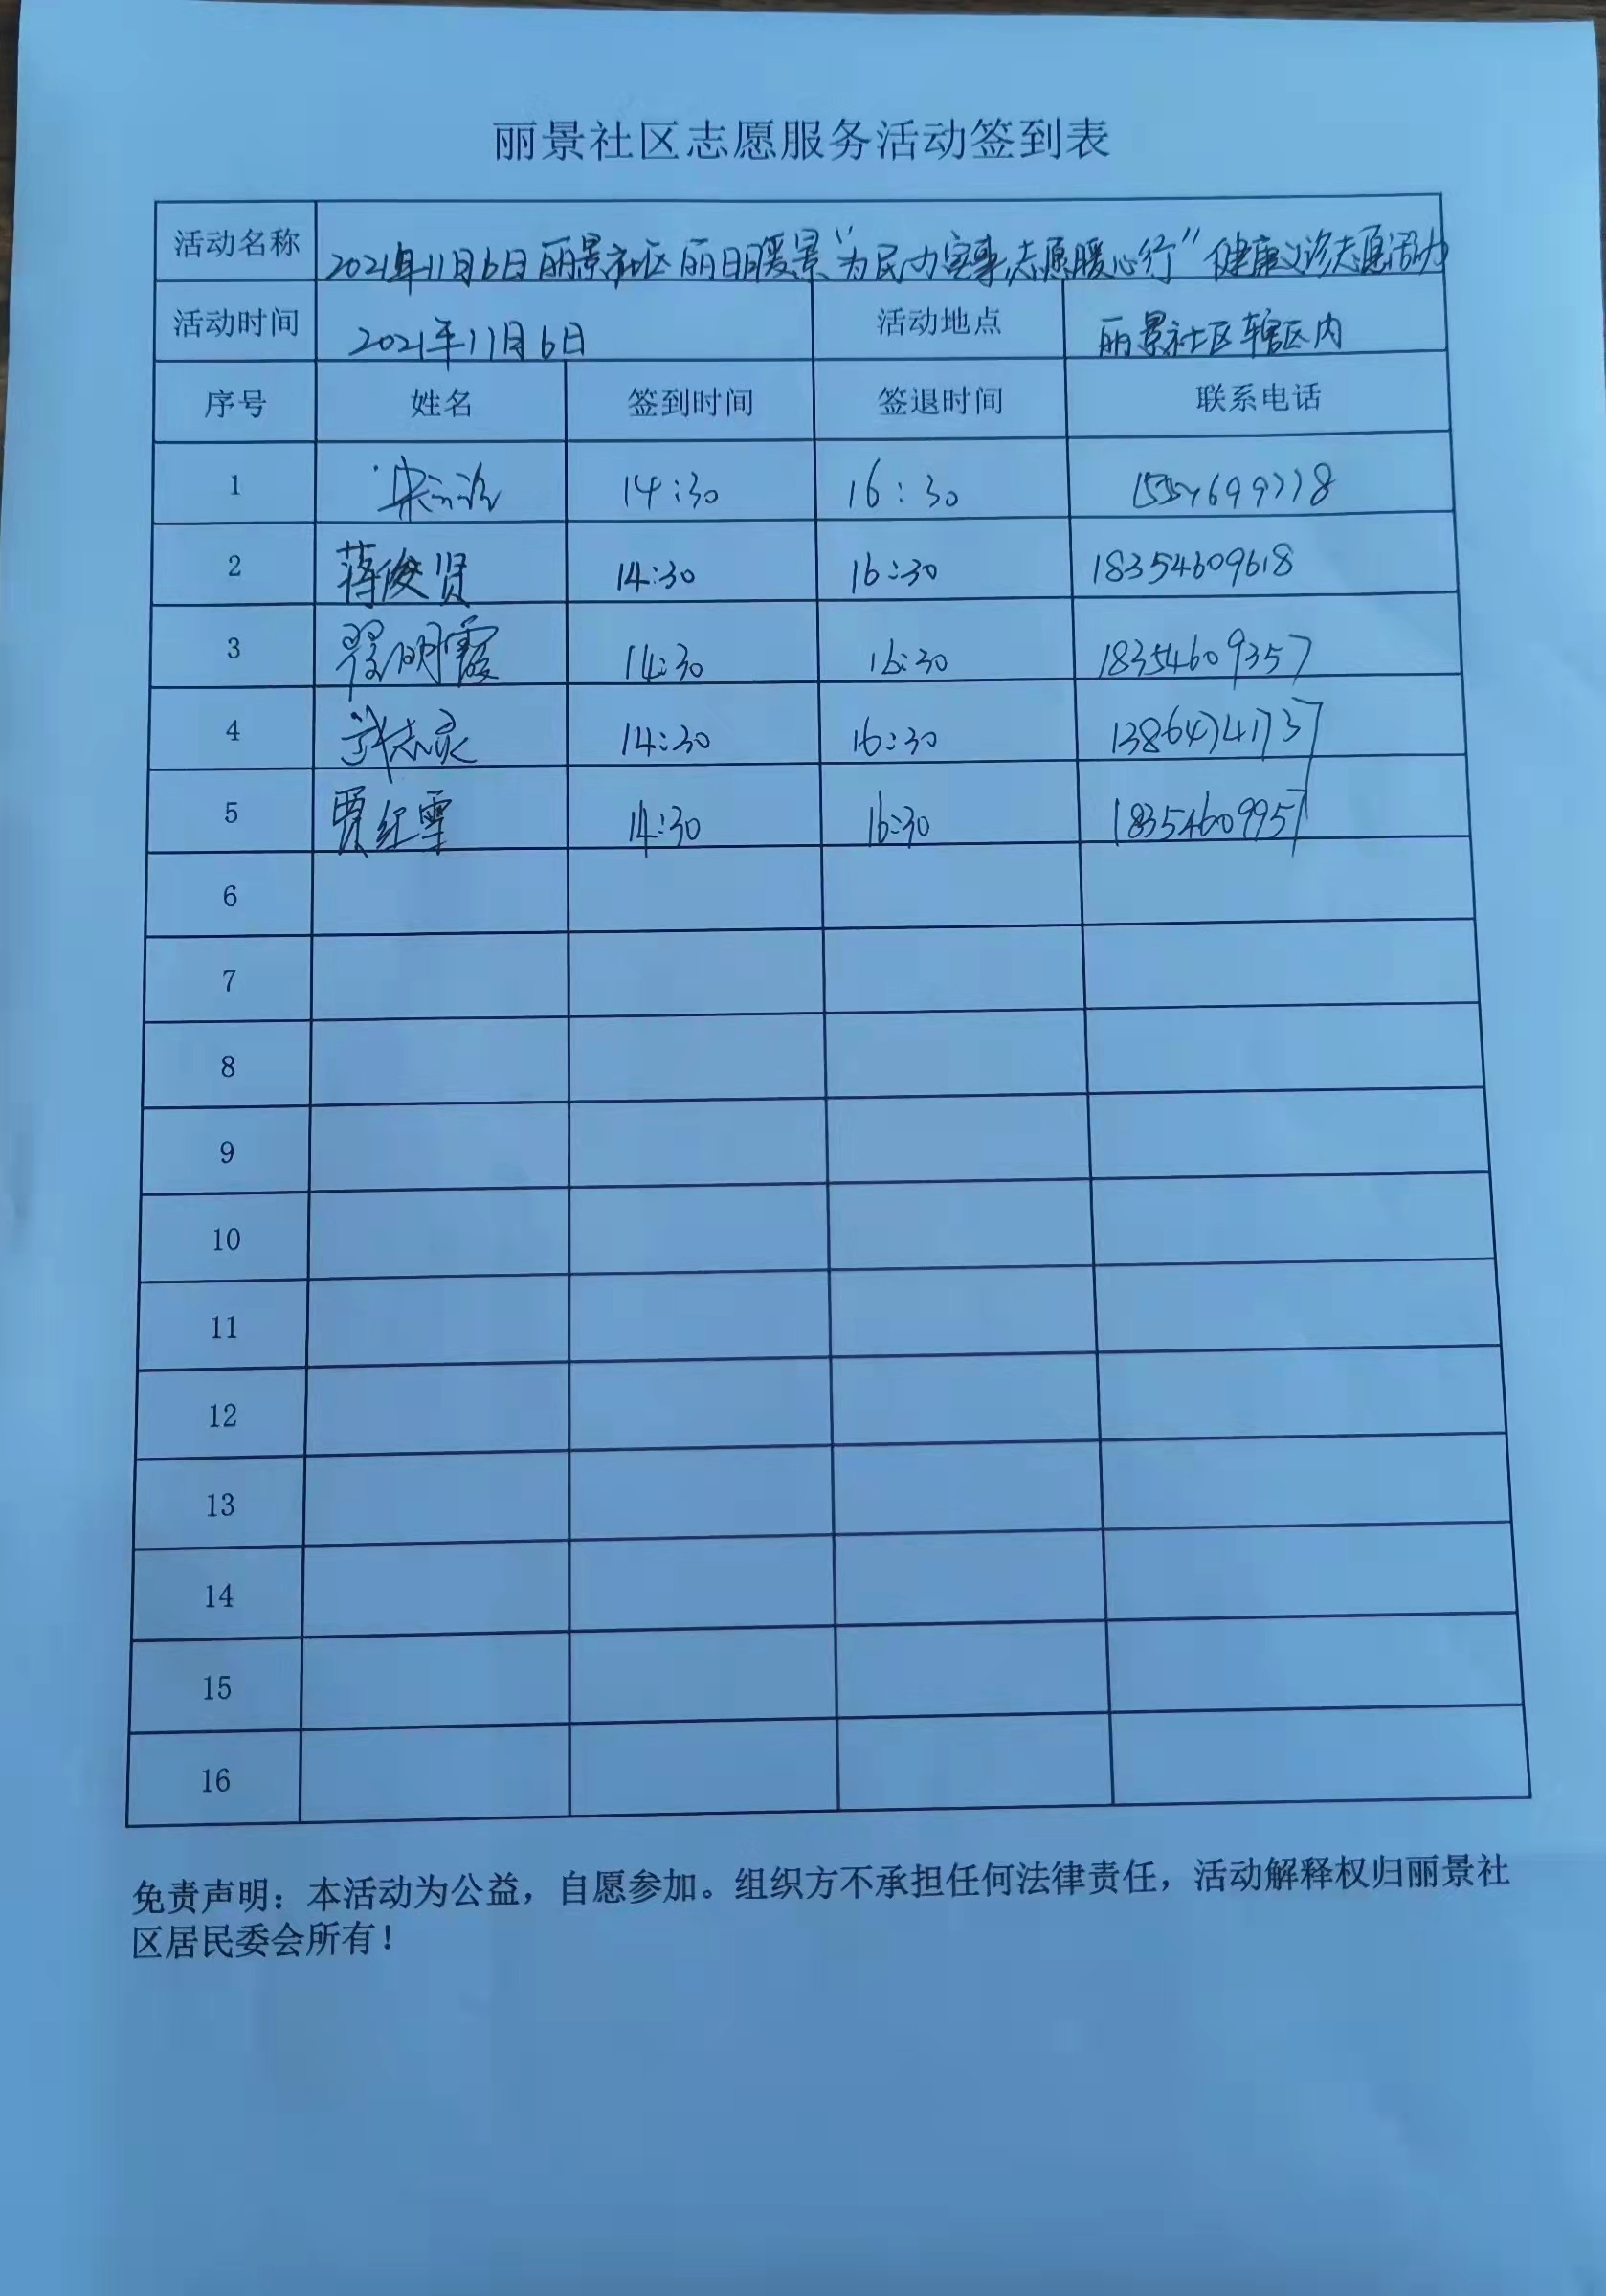 丽景社区志愿服务活动签到表
活动名称 2021年11月6日丽景社区丽日暖景“为民办实事,志愿暖心行”健康义诊志愿活动
活动时间 2021年11月6日 活动地点 丽景社区辖区内
序号 姓名 签到时间 签退时间 联系电话
1 14:30 16:30
2 蒋俊贤 14:30 16:30 18354609618
3 明霞 14:30 16:30 18354609357
4 武志灵 14:30 16:30 13864741737
5 贾红雪 14:30 16:30 18354609957
6
7
8
9
10
11
12
13
14
15
16
免责声明：本活动为公益，自愿参加。组织方不承担任何法律责任，活动解释权归丽景社
区居民委会所有！